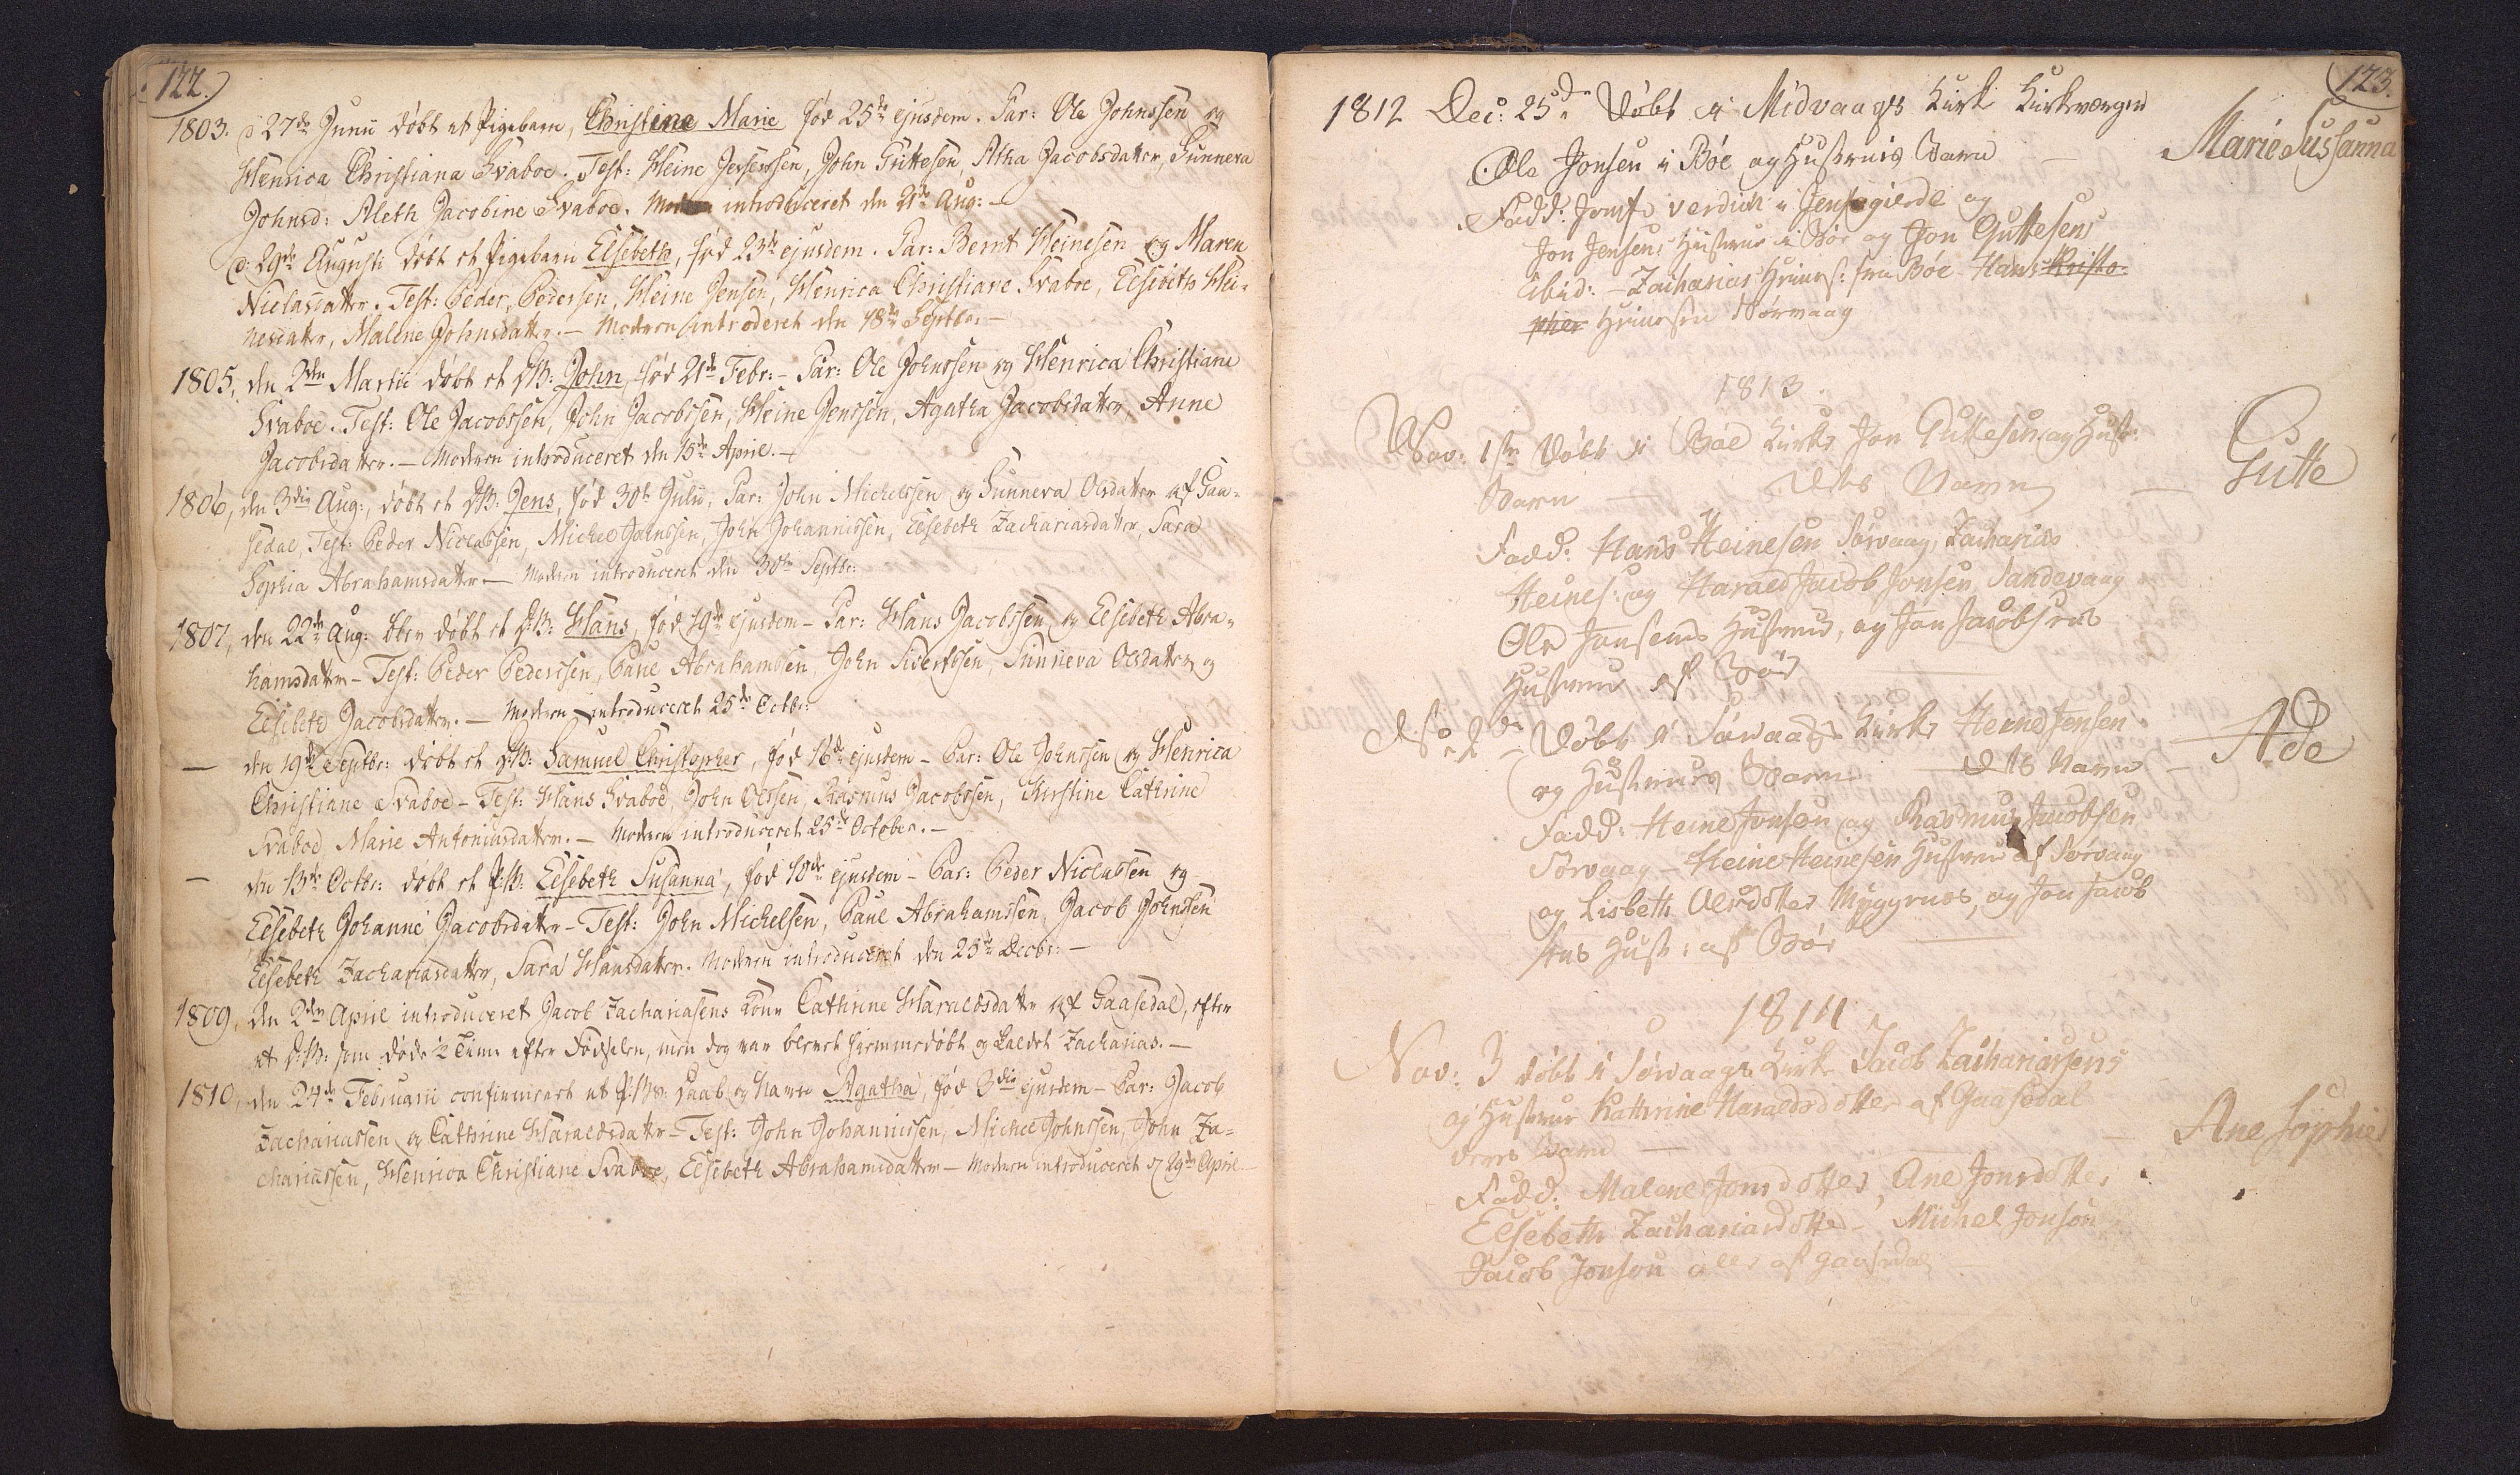 122.
1803. d 27de Junii döbt et Pigebarn, Christine Marie föd 25de ejusdem. Par: Ole Johnssen og
Henrica Christiana Svaboe. Test: Heine Jensen, John Guttesen, Atha Jacobsdatter, Sunneva
Johnsd: Aleth Jacobine Svaboe. Moderen introduceret den 21de Aug: —
d: 29de Augusti döbt et Pigebarn Elsebeth, föd 23de ejusdem. Par: Bernt Heinesen og Maren
Niclasdatter. Test: Peder Pedersen, Heine Jensen, Henrica Christiane Svaboe, Elsebeth Hei-
nesdatter, Malene Johnsdatter. — Moderen introderet den 18de Septbr. —
1805, den 2den Martii döbt et DB: John, föd 21de Febr: - Par: Ole Johnssen og Henrica Christiane
Svaboe. Test: Ole Jacobssen, John Jacobssen, Heine Jenssen, Agatha Jacobsdatter, Anne
Jacobsdatter. — Moderen introduceret den 15de April. —
1806, den 3die Aug:, döbt et DB: Jens, föd 30te Julii, Par: John Michelssen og Sunneva Olsdatter af Gaa-
sedal, Test: Peder Niclassen, Michel Johnssen, John Johannissen, Elsebeth Zachariasdatter, Sara
Sophia Abrahamsdatter — Moderen introduceret den 30te Septbr:
1807, den 22de Aug: blev döbt et D:B: Hans, föd 19de ejusdem - Par: Hans Jacobssen og Elsebeth Abra-
hamsdatter - Test: Peder Pederssen, Paul Abrahamssen, John Sivertssen, Sunneva Olsdatter og
Elsebeth Jacobsdatter. — Moderen introduceret 25de Octbr:
— den 19de Septbr: döbt et DB: Samuel Christopher, föd 16de ejusdem - Par: Ole Johnssen og Henrica
Christiane Svaboe - Test: Hans Svaboe, John Olssen, Rasmus Jacobssen, Kirstine Cathrine
Svaboe, Marie Antoniusdatter. — Moderen introduceret 25de October. —
— den 13de Octbr: döbt et P:B: Elsebeth Susanna, föd 10de ejusdem - Par: Peder Niclassen og
Elsebeth Johanne Jacobsdatter - Test: John Michelsen, Paul Abrahamssen, Jacob Johnssen
Elsebeth Zachariasdatter, Sara Hansdatter. Moderen introduceret den 25de Decbr: —
1809, den 2den April introduceret Jacob Zachariasens Kone Cathrine Haraldsdatter af Gaasedal, efter
et D:B: som döde 2 Timer efter Födselen, men dog var blevet hiemmedöbt og kaldet Zacharias. —
1810, den 24de Februarii confirmeret et P:B: Daab og Navn Agatha, föd 3die ejusdem - Par: Jacob
Zachariassen og Cathrine Haraldsdatter - Test: John Johannissen, Michel Johnssen, John Za-
chariassen, Henrica Christiane Svaboe, Elsebeth Abrahamsdatter — Moderen introduceret d 29de April
123.
1812 Dec: 25de Döbt i Midvaags Kirke Kirkeværgen
Ole Jonsen i Böe og Hustrues Barn — Marie Sussanna
Fadd: Jens i Jensagierde og
Jon Jensens Hustrue i Böe og Jon Guttesens
ibid: - Zacharias Heines: fra Böe - Hans Kristo-
pher Heinesen Sörvaag
1813
Nov: 1ste Döbt i Böe Kirke Jon Guttesen og Hust:
Barn — Dets Navn — Gutte
Fadd: Hans Heinesen Sörvaag, Zacharias
Heines: og Harald Jacob Jonsen Sandevaag
Ole Jonsens Hustrue, og Jon Jacobsens
Hustrue af Böe
Döbt i Sörvaags Kirke Heine Jensen
og Hustrues Barn — dets Navn — Ade
Fadd: Heine Jonsen og Rasmus Jacobsen
Sörvaag - Heine Heinesen Hustrue af Sörvaag
og Lisbeth Olesdotter Myggenæs, og Jon Jacob
sens Hust: af Böe
1814
Nov: 3 döbt i Sörvaags Kirke Jacob Zachariasens
og Hustrue Kathrine Haraldsdotter af Gaasedal
deres Barn — Ane Sophie
Fadd: Malene Jonsdotter, Ane Jonsdotter
Elsebeth Zachariasdotter - Michel Jonsen
Jacob Jonsen alle af Gaasedal